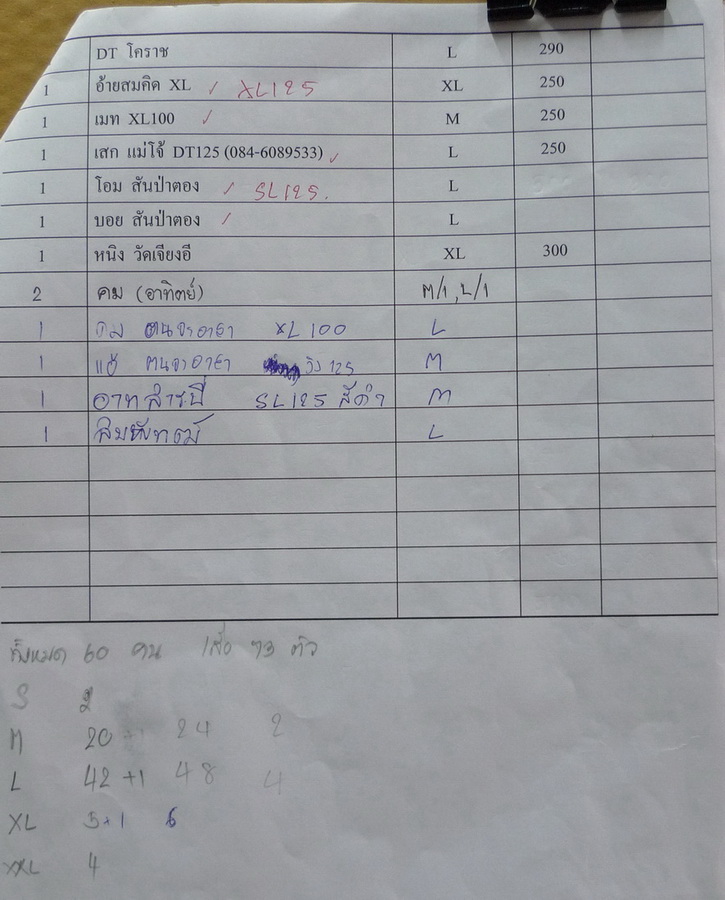 DT โคราช L 290
1 อ้ายสมคิด XL ✓ XL125 XL 250
1 เมท XL100 ✓ M 250
1 เสก แม่โจ้ DT125 (084-6089533) ✓ L 250
1 โอม สันป่าตอง ✓ SL125. L
1 บอย สันป่าตอง ✓ L
1 หนิง วัดเจียงอี XL 300
2 คม (อาทิตย์) M/1, L/1
1 XL100 L
1 วิง 125 M
1 อาทสารภี SL125 สีดำ M
1 L
ทั้งหมด 60 คน เสื้อ 73 ตัว
S 2
M 20 24 2
L 42 +1 48 4
XL 5+1 6
XXL 4